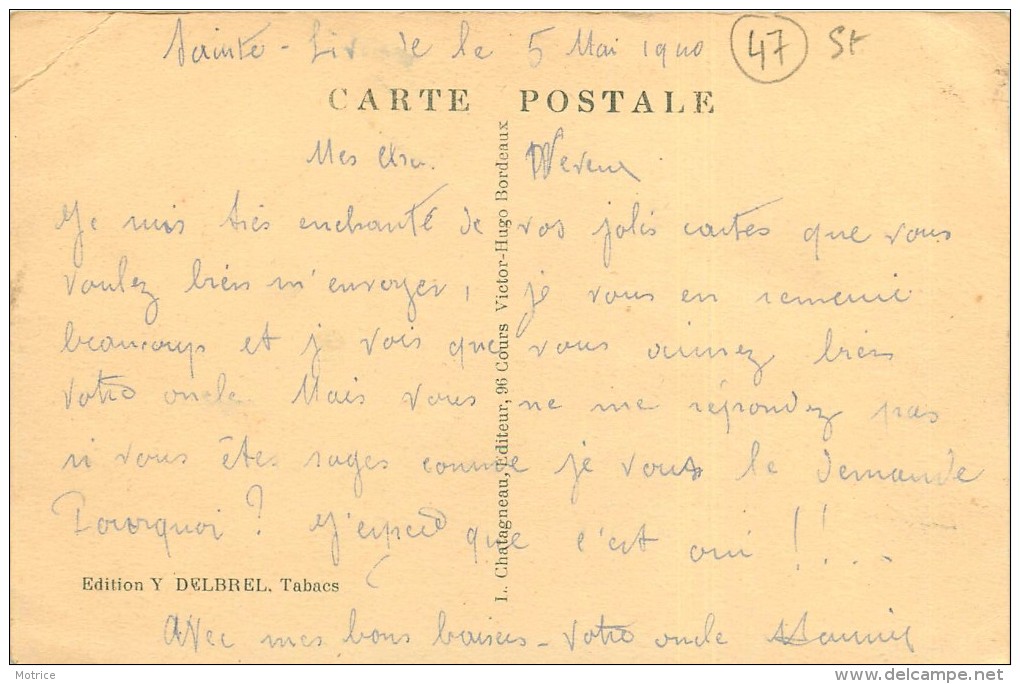 Sainte-Livrade le 5 Mai 1940 47 St
CARTE POSTALE
Mes chers Neveux
Je suis très enchanté de vos jolés cartes que vous
voulez bien m'envoyer, je vous en remercie
beaucoup et j vois que vous aimez bien
votre oncle Mais vous ne me répondez pas
si vous êtes sages comme je vous le demande
Pourquoi ? J'espère que c'est oui !!...
L. Chatagneau, Editeur, 96 Cours Victor-Hugo Bordeaux
Edition Y DELBREL. Tabacs
Avec mes bons baisers - votre oncle
Motrice
delcampe.net